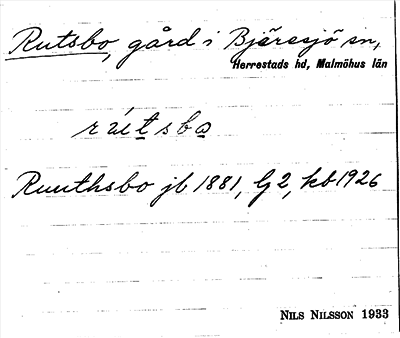 Rutsbo, gård i Bjäresjö sn,
Herrestads hd, Malmöhus län
rútsbo
Ruuthsbo jb 1881, G2, kb 1926
NILS NILSSON 1933